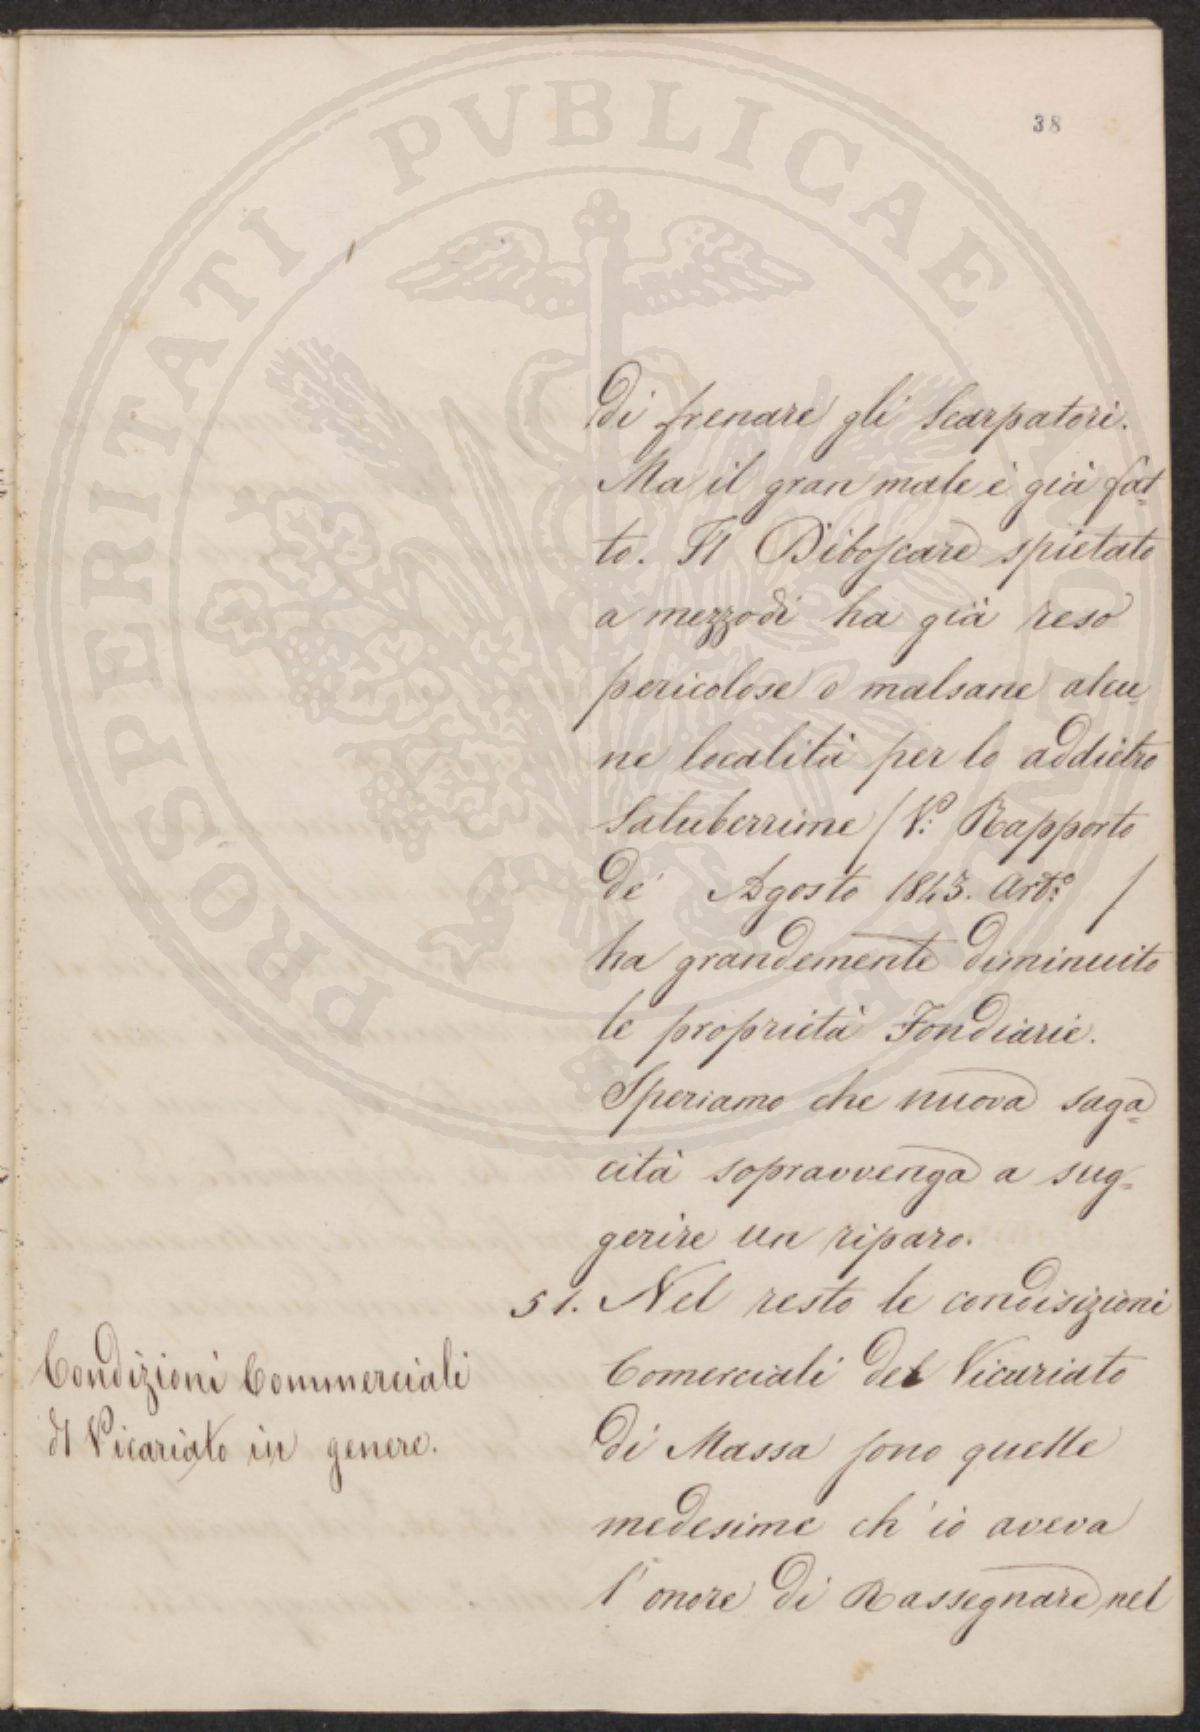 38
di frenare gli Scarpatori.
Ma il gran male è già fat=
to. Il Diboscare spietato
a mezzodì ha già reso
pericolose o malsane alcu=
ne località per lo addietro
Saluberrime / V.° Rapporto
de' Agosto 1843. Art.° /
ha grandemente diminuito
le proprietà Fondiarie.
Speriamo che nuova saga=
cità sopravvenga a sug=
gerire un riparo.
51. Nel resto le condisizioni
Comerciali del Vicariato
di Massa sono quelle
medesime ch'io aveva
l'onore di Rassegnare nel
Condizioni Commerciali
dl Vicariato in genere.
PROSPERITATI PVBLICAE